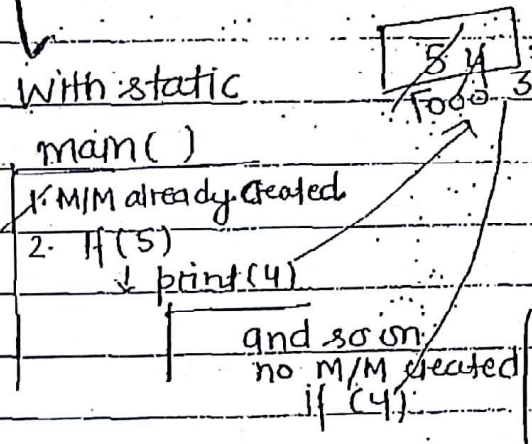 5 4 3
With static
1000
main( )
1. M/M already Created
2. If (5)
↓ print(4)
and so on
no M/M created
if (4)